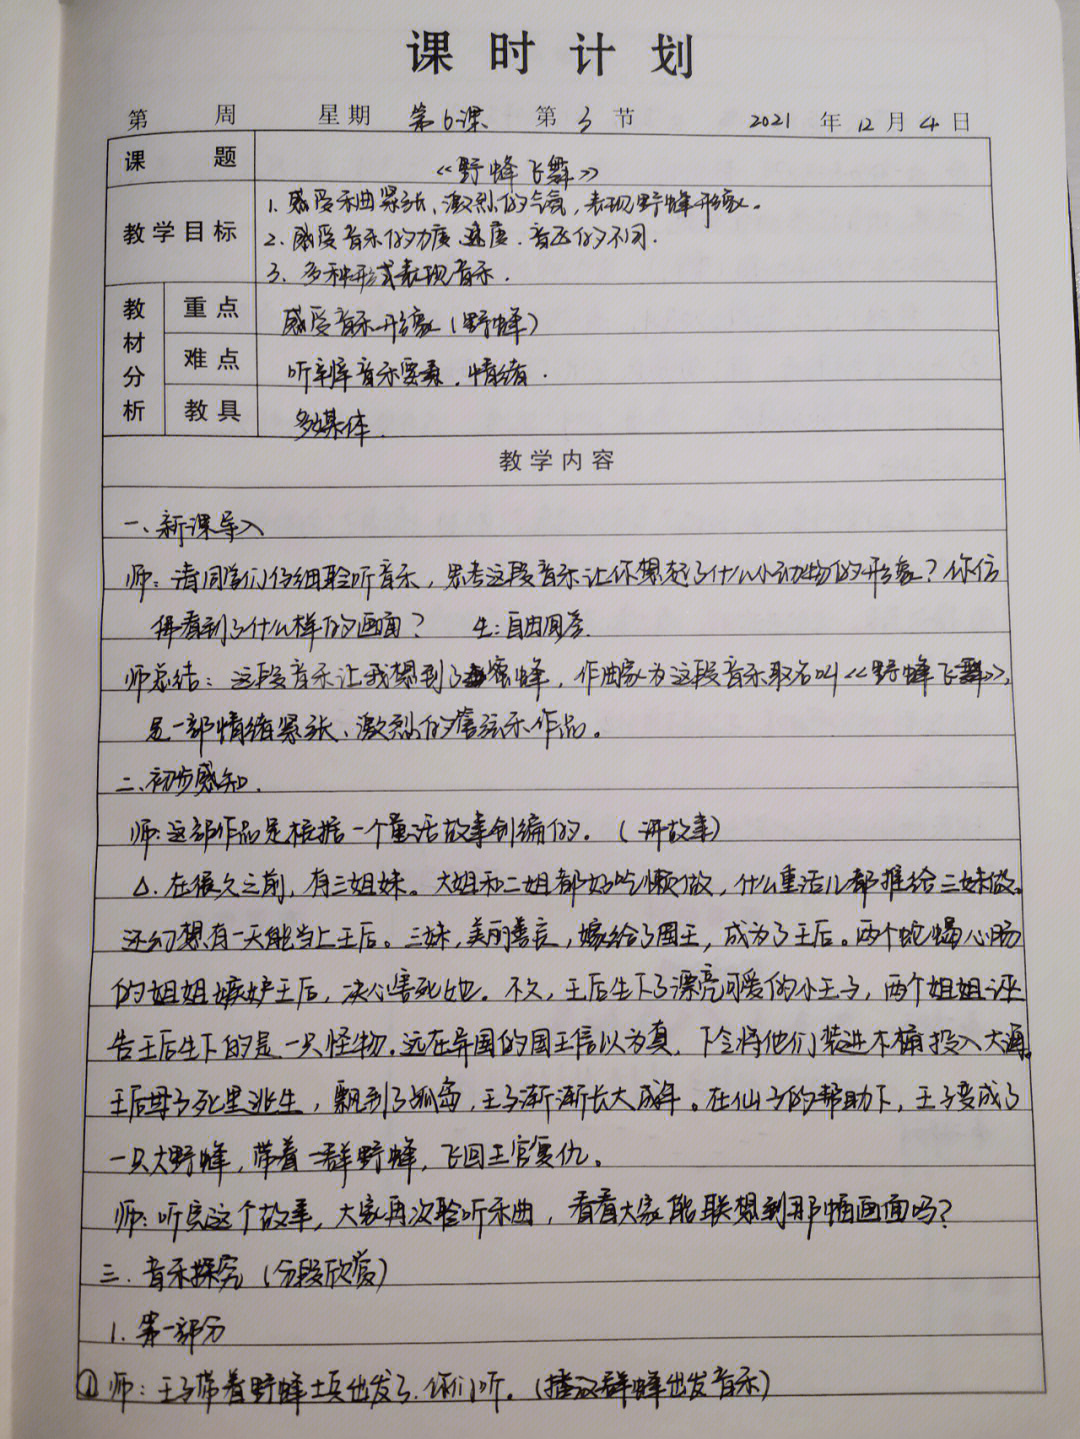 课时计划
第 周 星期 第6课 第3节 2021年12月4日
课题 《野蜂飞舞》
教学目标 1. 感受乐曲紧张、激烈的气氛，表现野蜂形象。
2. 感受音乐的力度、速度、音区的不同.
3. 多种形式表现音乐.
教材分析 重点 感受音乐形象(野蜂)
难点 听辨音乐要素、情绪.
教具 多媒体.
教学内容
一、新课导入
师：请同学们仔细聆听音乐，思考这段音乐让你想起了什么小动物的形象？你仿
得看到了什么样的画面？ 生：自由回答.
师总结：这段音乐让我想到了蜜蜂，作曲家为这段音乐取名叫《野蜂飞舞》,
是一部情绪紧张、激烈的管弦乐作品。
二、初步感知.
师：这部作品是根据一个童话故事创编的。(讲故事)
△. 在很久之前，有三姐妹。大姐和二姐都好吃懒做，什么重活儿都推给三妹做。
还幻想有一天能当上王后。三妹，美丽善良，嫁给了国王，成为了王后。两个蛇蝎心肠
的姐姐嫉妒王后，决心害死她。不久，王后生下了漂亮可爱的小王子，两个姐姐诬
告王后生下的是一只怪物.远在异国的国王信以为真，下令将他们装进木桶投入大海。
王后母子死里逃生，飘到了孤岛，王子渐渐长大成年。在仙子的帮助下，王子变成了
一只大野蜂，带着一群野蜂，飞回王宫复仇。
师：听完这个故事，大家再次聆听乐曲，看看大家能联想到那幅画面吗？
三．音乐探究(分段欣赏)
1. 第一部分
① 师：王子带着野蜂士兵出发了.你们听。(播放群蜂出发音乐)